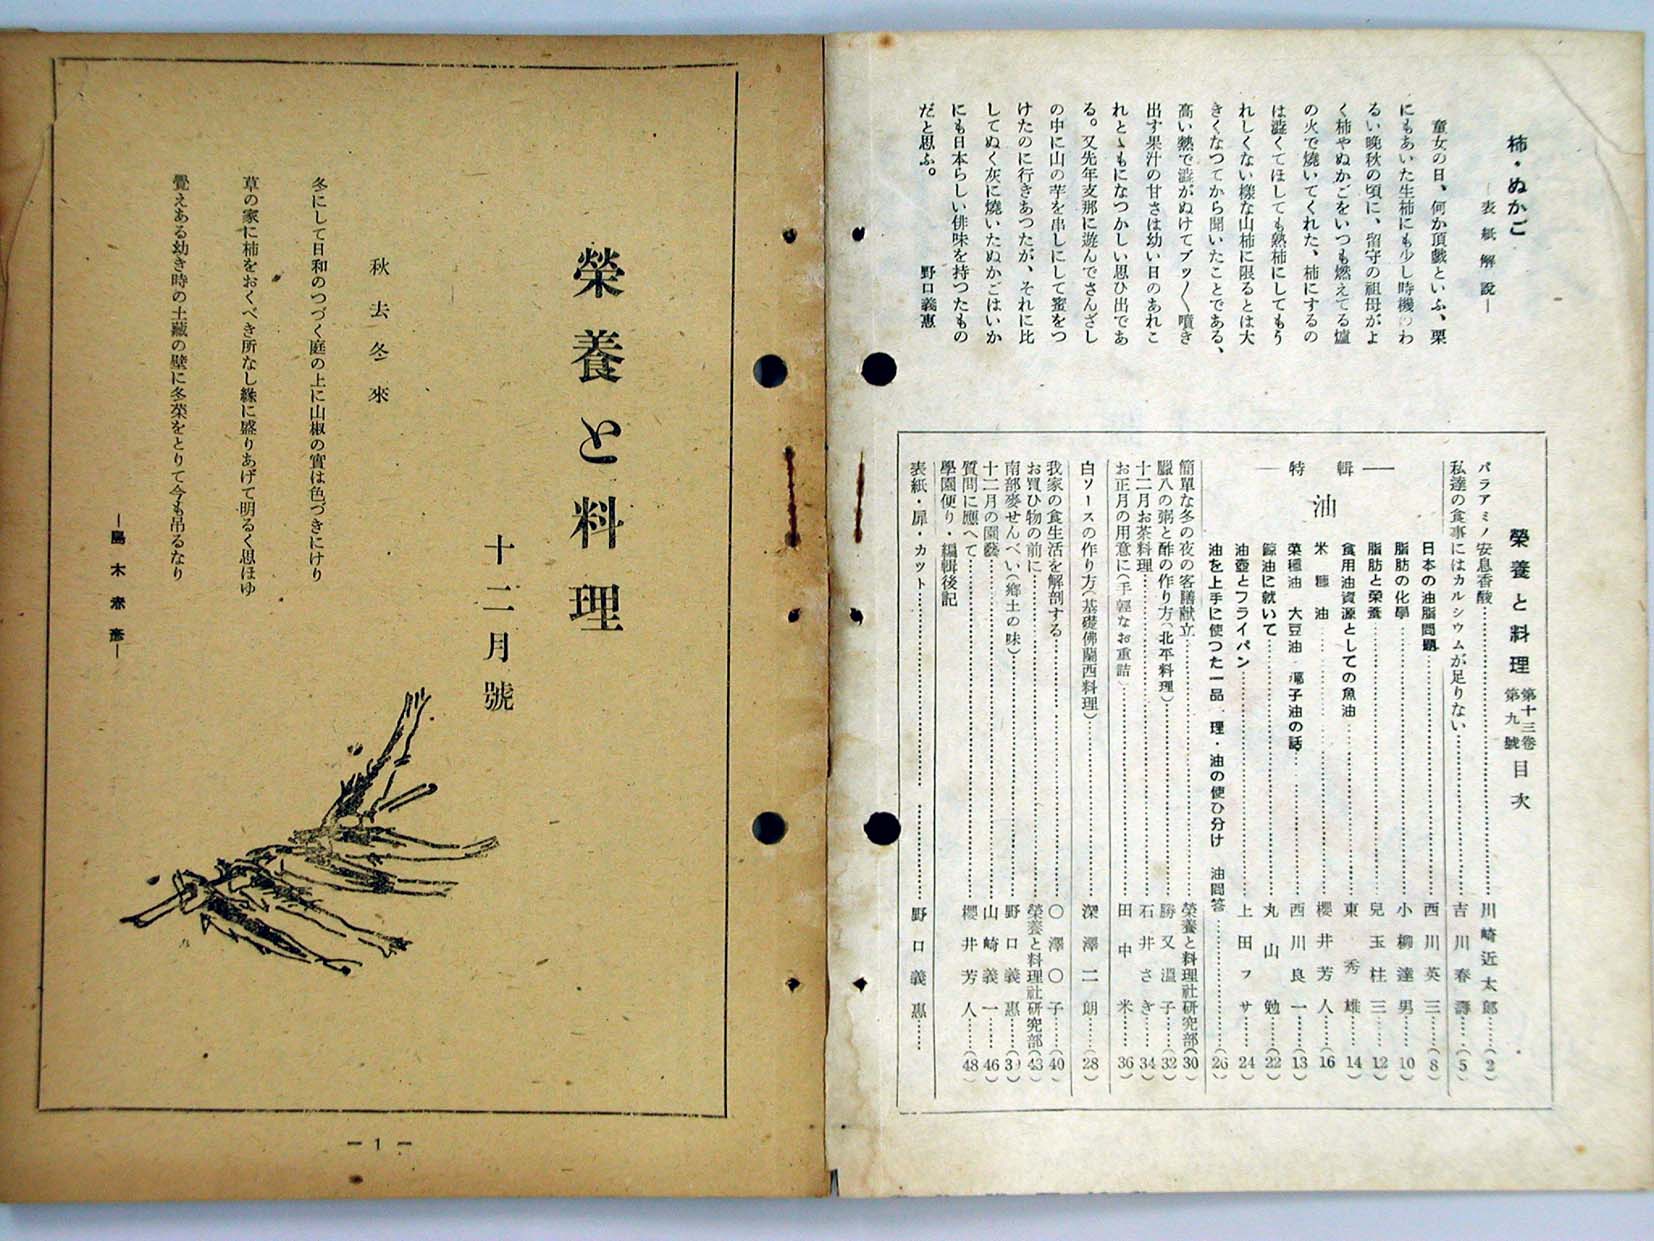 柿・ぬかご
―表紙解説―
童女の日、何か頂戴といふ、栗
にもあいた生柿にも少し時機のわ
るい晩秋の頃に、留守の祖母がよ
く柿やぬかごをいつも燃えてる爐
の火で燒いてくれた、柿にするの
は澁くてほしても熟柿にしてもう
れしくない樣な山柿に限るとは大
きくなつてから聞いたことである、
高い熱で澁がぬけてブツ〱噴き
出す果汁の甘さは幼い日のあれこ
れとゝもになつかしい思ひ出であ
る。又先年支那に遊んでさんざし
の中に山の芋を串しにして蜜をつ
けたのに行きあつたが、それに比
してぬく灰に燒いたぬかごはいか
にも日本らしい俳味を持つたもの
だと思ふ。 野口義惠
榮養と料理 第十三卷 第九號 目次
パラアミノ安息香酸……川崎近太郎……(2)
私達の食事にはカルシウムが足りない……吉川春壽……(5)
―特輯―
油
日本の油脂問題……西川英三……(8)
脂肪の化學……小柳達男……10
脂肪と榮養……兒玉桂三……12
食用油資源としての魚油……東秀雄……14
米糠油……櫻井芳人……16
菜種油 大豆油 椰子油の話……西川良一……13
鯨油に就いて……丸山勉……22
油壺とフライパン……上田フサ……24
油を上手に使つた一品 理・油の使ひ分け 油問答……(26)
簡單な冬の夜の客膳献立……榮養と料理社研究部(30
臘八の粥と酢の作り方(北平料理)……勝又溫子……(32)
十二月お茶料理……石井さき……34
お正月の用意に(手輕なお重詰)……田中米……36
白ソースの作り方(基礎佛蘭西料理)……深澤二朗……(28)
我家の食生活を解剖する……〇澤〇子……(40)
お買ひ物の前に……榮養と料理社研究部(43)
南部麥せんべい(鄕土の味)……野口義惠……(3)
十二月の園藝……山崎義一……46
質問に應へて……櫻井芳人……(48)
學園便り・編輯後記
表紙・扉・カット……野口義惠……
榮養と料理
十二月號
秋去冬來
冬にして日和のつづく庭の上に山椒の實は色づきにけり
草の家に柿をおくべき所なし緣に盛りあげて明るく思ほゆ
覺えある幼き時の土藏の壁に冬菜をとりて今も吊るなり
―島木赤彥―
― 1 ―